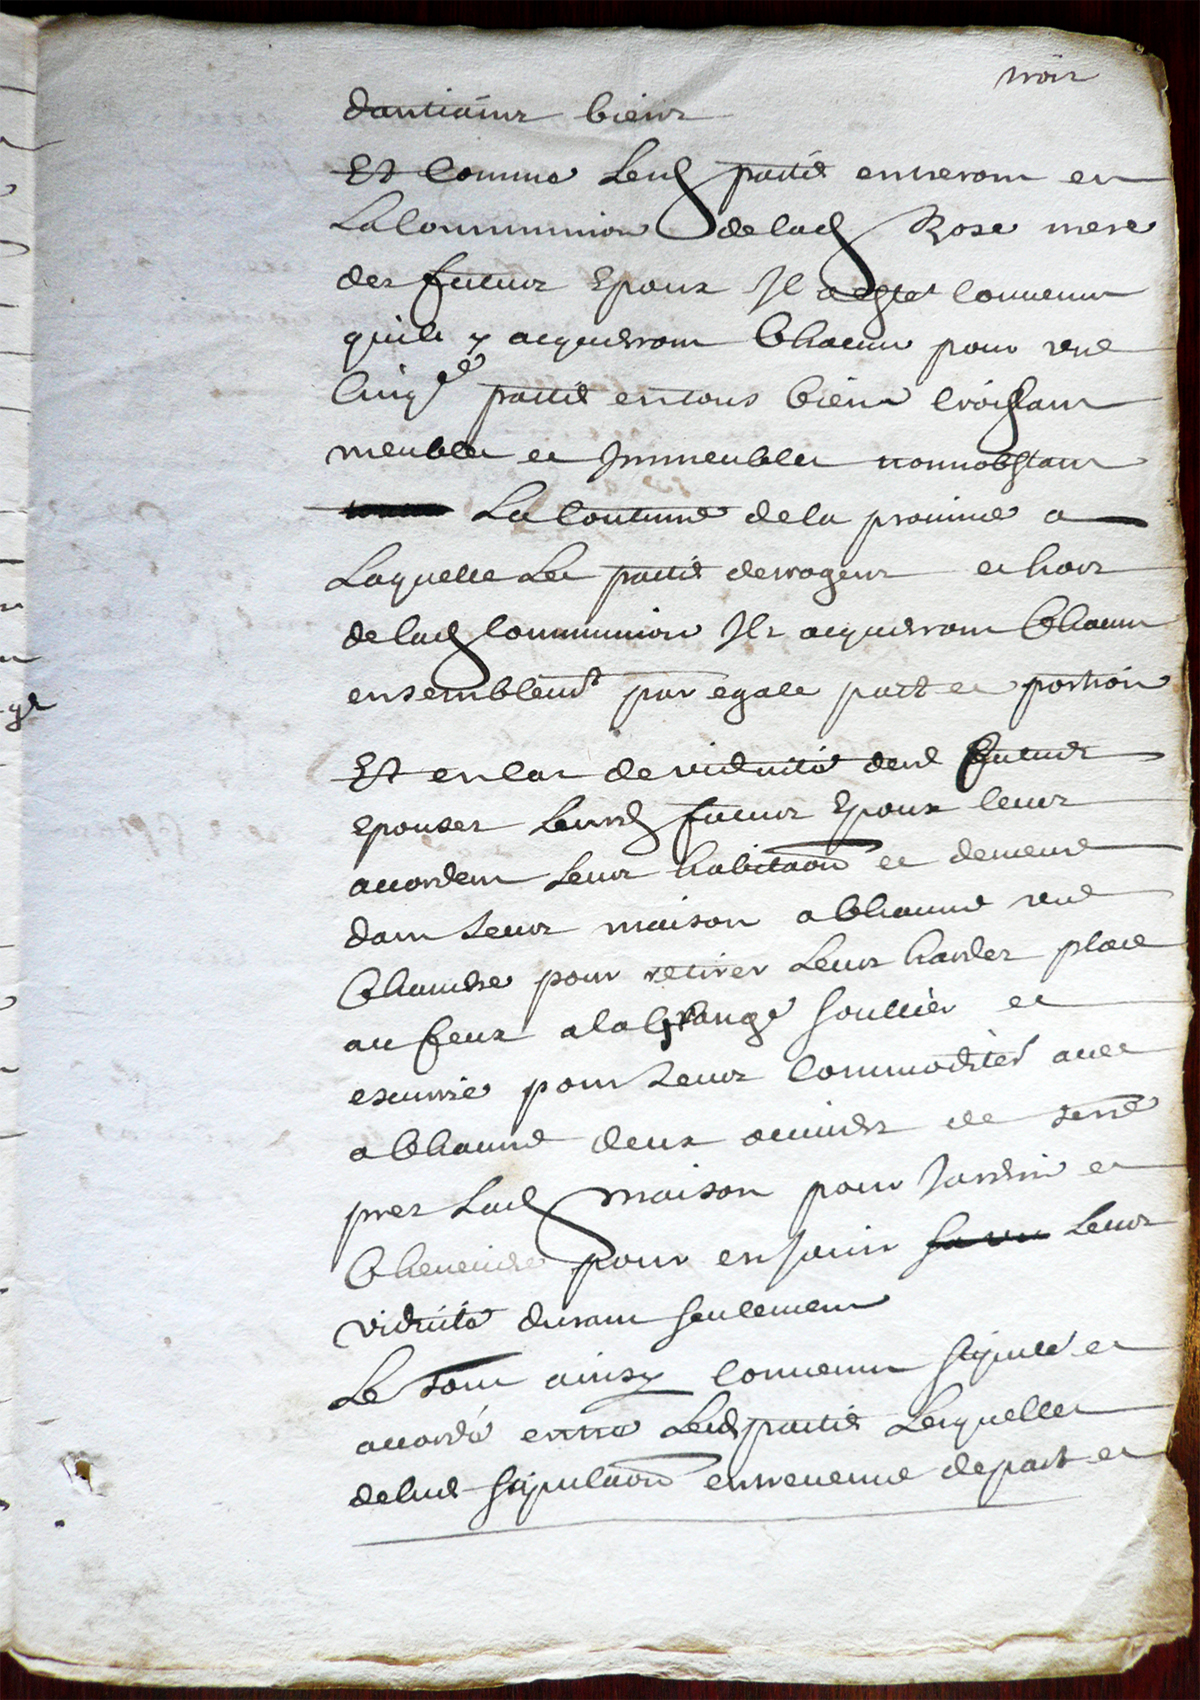 trois
dantiains biens
Et comme lesd partie entreront en
la Communion de lad Rose mere
des futurs Epoux Il a esté Convenu
quils y acquerront Chacun pour une
Cinq.e partie en tous biens croissans
meubles et Immeubles nonnobstant
La Coutume de la province a
Laquelle Les partie derogent et hors
de lad Communion Ils acquerront Chacun
ensemblemt par egale part et portion
Et en Cas de viduité desd futures
epouses Lesurd futurs Epoux leurs
accordent leurs habitaõn et demeure
dans leurs maison a Chacune une
Chambre pour retirer leurs hardes place
au feux a la Grange soullier et
escurie pour leurs Commodités avec
a Chacune deux ouvrées de terre
pres Lad maison pour Jardin et
Cheneviere pour en Jouir leurs
viduité durant seulement
Le tout ainsy Convenu stipulé et
accordé entre Lesd partie Lesquelles
de lad stipulaõn entrevenue de part et